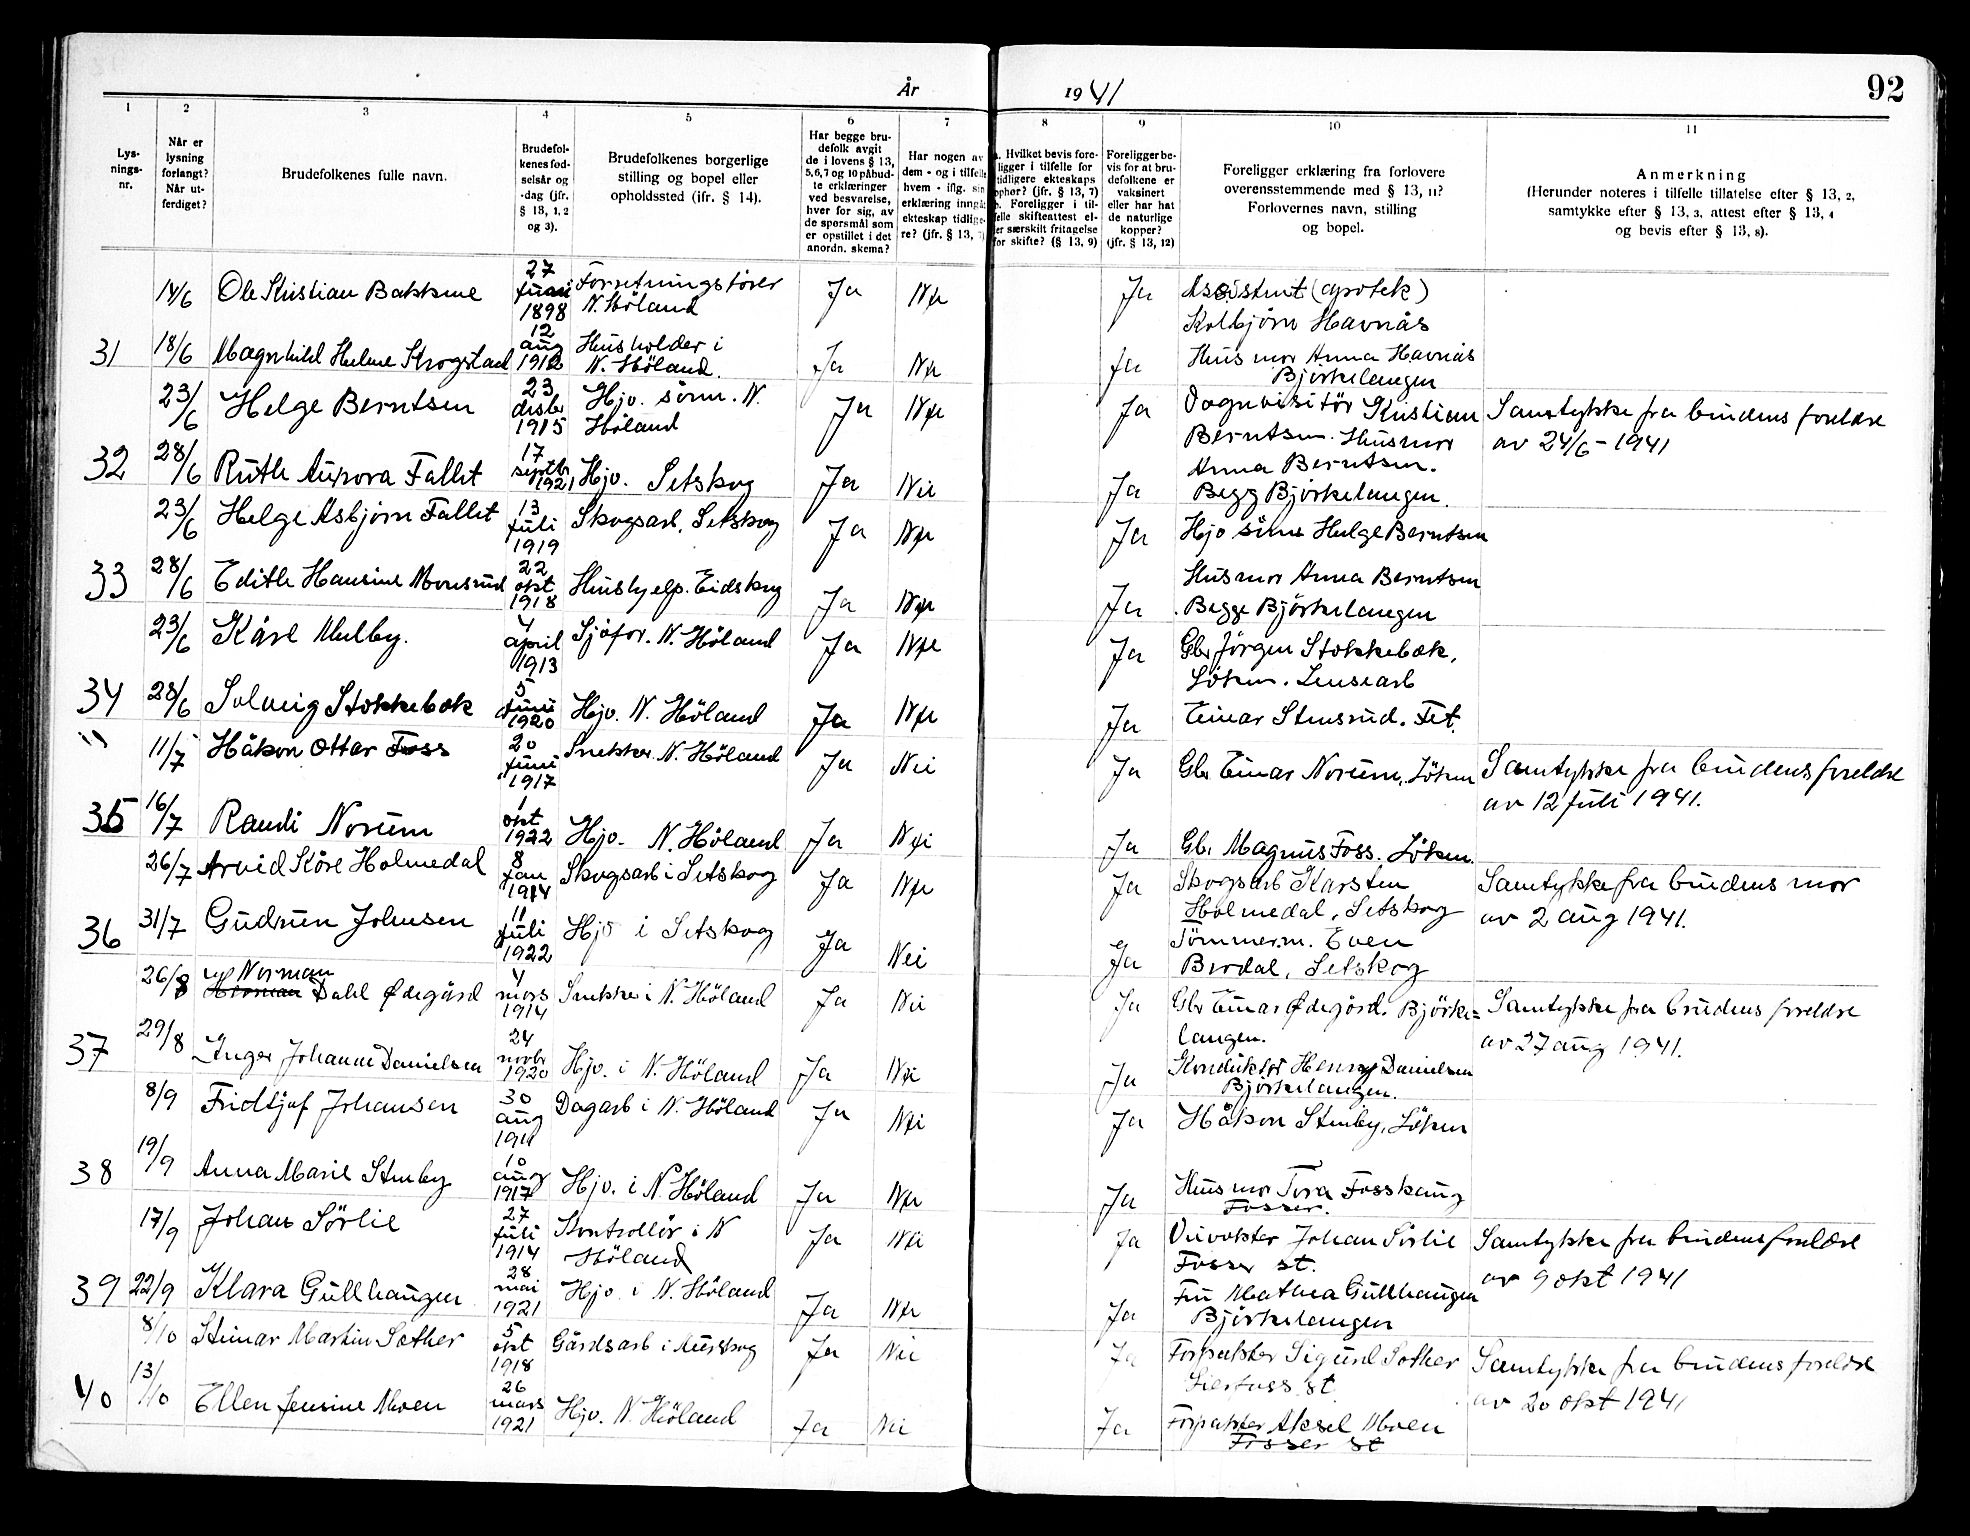 År 1941
92
1 2 3 4 5 6 7 8 9 10 11
Lys-
nings-
nr.
Når er
lysning
forlangt?
Når ut-
ferdiget?
Brudefolkenes fulle navn.
Brudefol-
kenes fød-
selsår og
-dag (jfr.
§ 13, 1, 2
og 3).
Brudefolkenes borgerlige
stilling og bopel eller
opholdssted (jfr. § 14).
Har begge bru-
defolk avgit
de i lovens § 13,
5, 6, 7 og 10 påbud-
te erklæringer
ved besvarelse,
hver for sig, av
de spørsmål som
er opstillet i det
anordn. skema?
Har nogen av
dem - og i tilfelle
hvem - iflg. sin
erklæring inngå
ekteskap tidlige-
re? (jfr. § 13,
a. Hvilket bevis fore-
ligger i tilfelle for
tidligere ekteskaps
ophør? (jfr. § 13, 7)
b. Foreligger i til-
felle skifteattest el-
ler særskilt fritagelse
for skifte? (§ 13, 9)
Foreligger be-
vis for at bru-
defolkene er
vaksinert
eller har hat
de naturlige
kopper?
(jfr. § 13, 12)
Foreligger erklæring fra forlovere
overensstemmende med § 13, 11?
Forlovernes navn, stilling
og bopel.
Anmerkning
(Herunder noteres i tilfelle tillatelse efter § 13, 2,
samtykke efter § 13, 3, attest efter § 13, 4
og bevis efter § 13, 8).
14/6 Ole Kristian Bakkene 27 juni 1898 Forretningsfører N. Höland Ja Nei Ja Assistent (apotek)
Kolbjørn Havnås
31 18/6 Magnhild Helene Skogstad 12 aug 1912 Husholder i N. Höland. Ja Nei Ja Husmor Anna Havnås
Björkelangen
23/6 Helge Berntsen 23 desbr 1915 Hjv. sönn. N. Höland Ja Nei Ja Vognvisitör Kristian
Berntsen. Husmor
Samtykke fra brudens foreldre
av 24/6 - 1941
32 28/6 Ruth Aurora Fallet 17 septbr 1921 Hjv. Setskog Ja Nei Ja Anna Berntsen.
Begg Björkelangen.
23/6 Helge Asbjørn Fallet 13 juli 1919 Skogsarb. Setskog Ja Nei Ja Hjv sönn Helge Berntsen
33 28/6 Edith Hansine Monsrud 22 okt 1918 Hushjelp. Eidskog Ja Nei Ja Husmor Anna Berntsen
Begge Björkelangen
23/6 Kåre Melby. 4 april 1913 Sjåfør. N. Höland Ja Nei Ja Gbr Jörgen Stokkebæk,
Löken. Linsearb
34 28/6 Solveig Stokkebæk 5 juni 1920 Hjv. N. Höland Ja Nei Ja Einar Stensrud. Fet.
" 11/7 Håkon Ottar Foss 20 juni 1917 Snekker N. Höland Ja Nei Ja Gbr Einar Norum, Löken
Samtykke fra brudens foreldre
av 12 juli 1941.
35 16/7 Randi Norum 1 okt 1922 Hjv. N. Höland Ja Nei Ja Gbr Magnus Foss. Löken.
26/7 Arvid Kåre Holmedal 8 jan 1914 Skogsarb i Setskog Ja Nei Ja Skogsarb Karsten
Holmedal, Setskog
Samtykke fra brudens mor
av 2 aug 1941.
36 31/7 Gudrun Johnsen 11 juli 1922 Hjv i Setskog Ja Nei Ja Tömmerm. Even
Berdal, Setskog
26/8 Norman
Herman Dahl Ødegård 4 mars 1914 Snekker i N. Höland Ja Nei Ja Gbr Einar Ødegård. Björke=
langen.
Samtykke fra brudens foreldre
av 27 aug 1941.
37 29/8 Inger Johanne Danielsen 24 novbr 1920 Hjv. i N. Höland Ja Nei Ja Konduktör Henry Danielsen
Björkelangen.
8/9 Fridtjof Johansen 30 aug 1911 Dagarb i N. Höland Ja Nei Ja Håkon Stenby, Löken
38 19/9 Anna Marie Stenby 10 aug 1917 Hjv. i N. Höland Ja Nei Ja Husmor Tora Fosshaug
Fosser.
17/9 Johan Sörlie 27 juli 1914 Kontrollör i N Höland Ja Nei Ja Veivokter Johan Sörlie
Fosser st.
Samtykke fra brudens foreldre
av 9 okt 1941
39 22/9 Klara Gullhaugen 28 mai 1921 Hjv. i N. Höland Ja Nei Ja Fru Mathea Gullhaugen
Björkelangen
8/10 Steinar Martin Sæther 5 okt 1918 Gårdsarb i Aurskog Ja Nei Ja Forpakter Sigurd Sæther
Lierfoss st.
Samtykke fra brudens foreldre
av 20 okt 1941
40 13/10 Ellen Jensine Moen 26 mars 1921 Hjv. N. Höland Ja Nei Ja Forpakter Aksel Moen
Fosser st